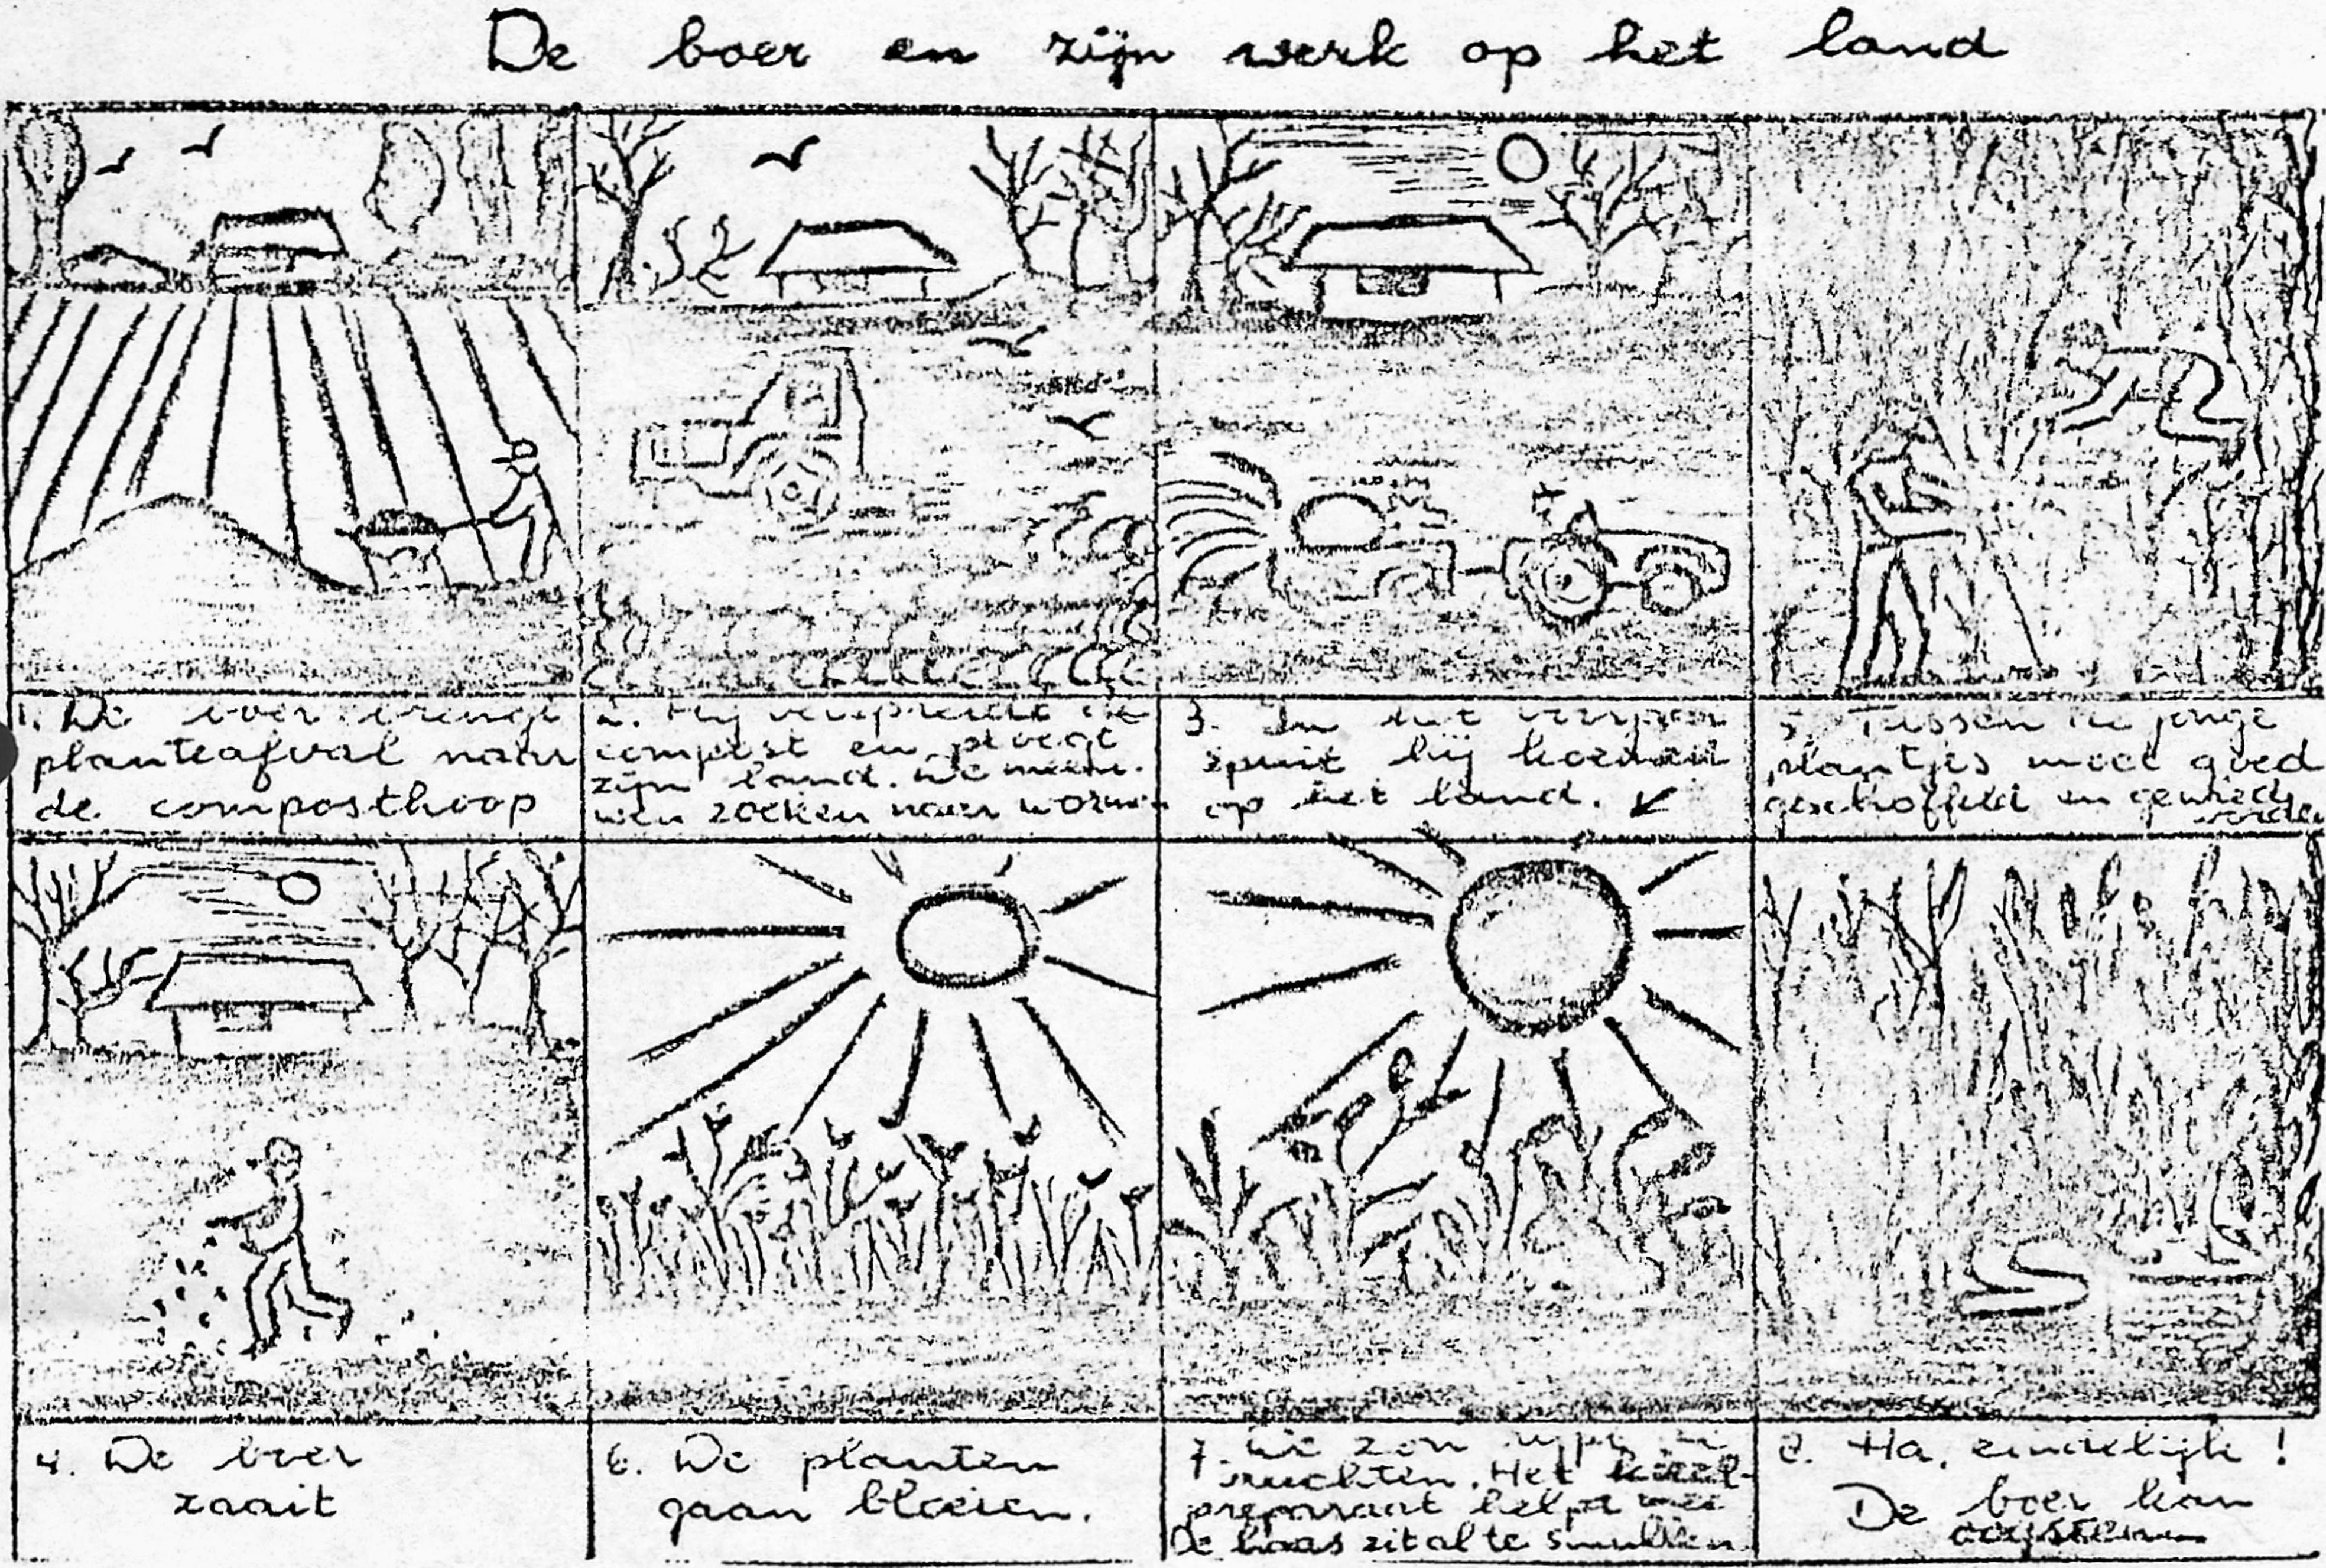 De boer en zijn werk op het land
1. De boer brengt
planteafval naar
de composthoop
2. Hij verspreidt de
compost en ploegt
zijn land. De meeu-
wen zoeken naar wormen
3. In het voorjaar
spuit hij koemest
op het land. ↙
5. Tussen de jonge
plantjes moet goed
geschoffeld en gewied
worden
4. De boer
zaait
6. De planten
gaan bloeien.
7. De zon rijpt de
vruchten. Het kiezel-
preparaat helpt mee
De haas zit al te smullen
8. Ha, eindelijk!
De boer kan
oogsten